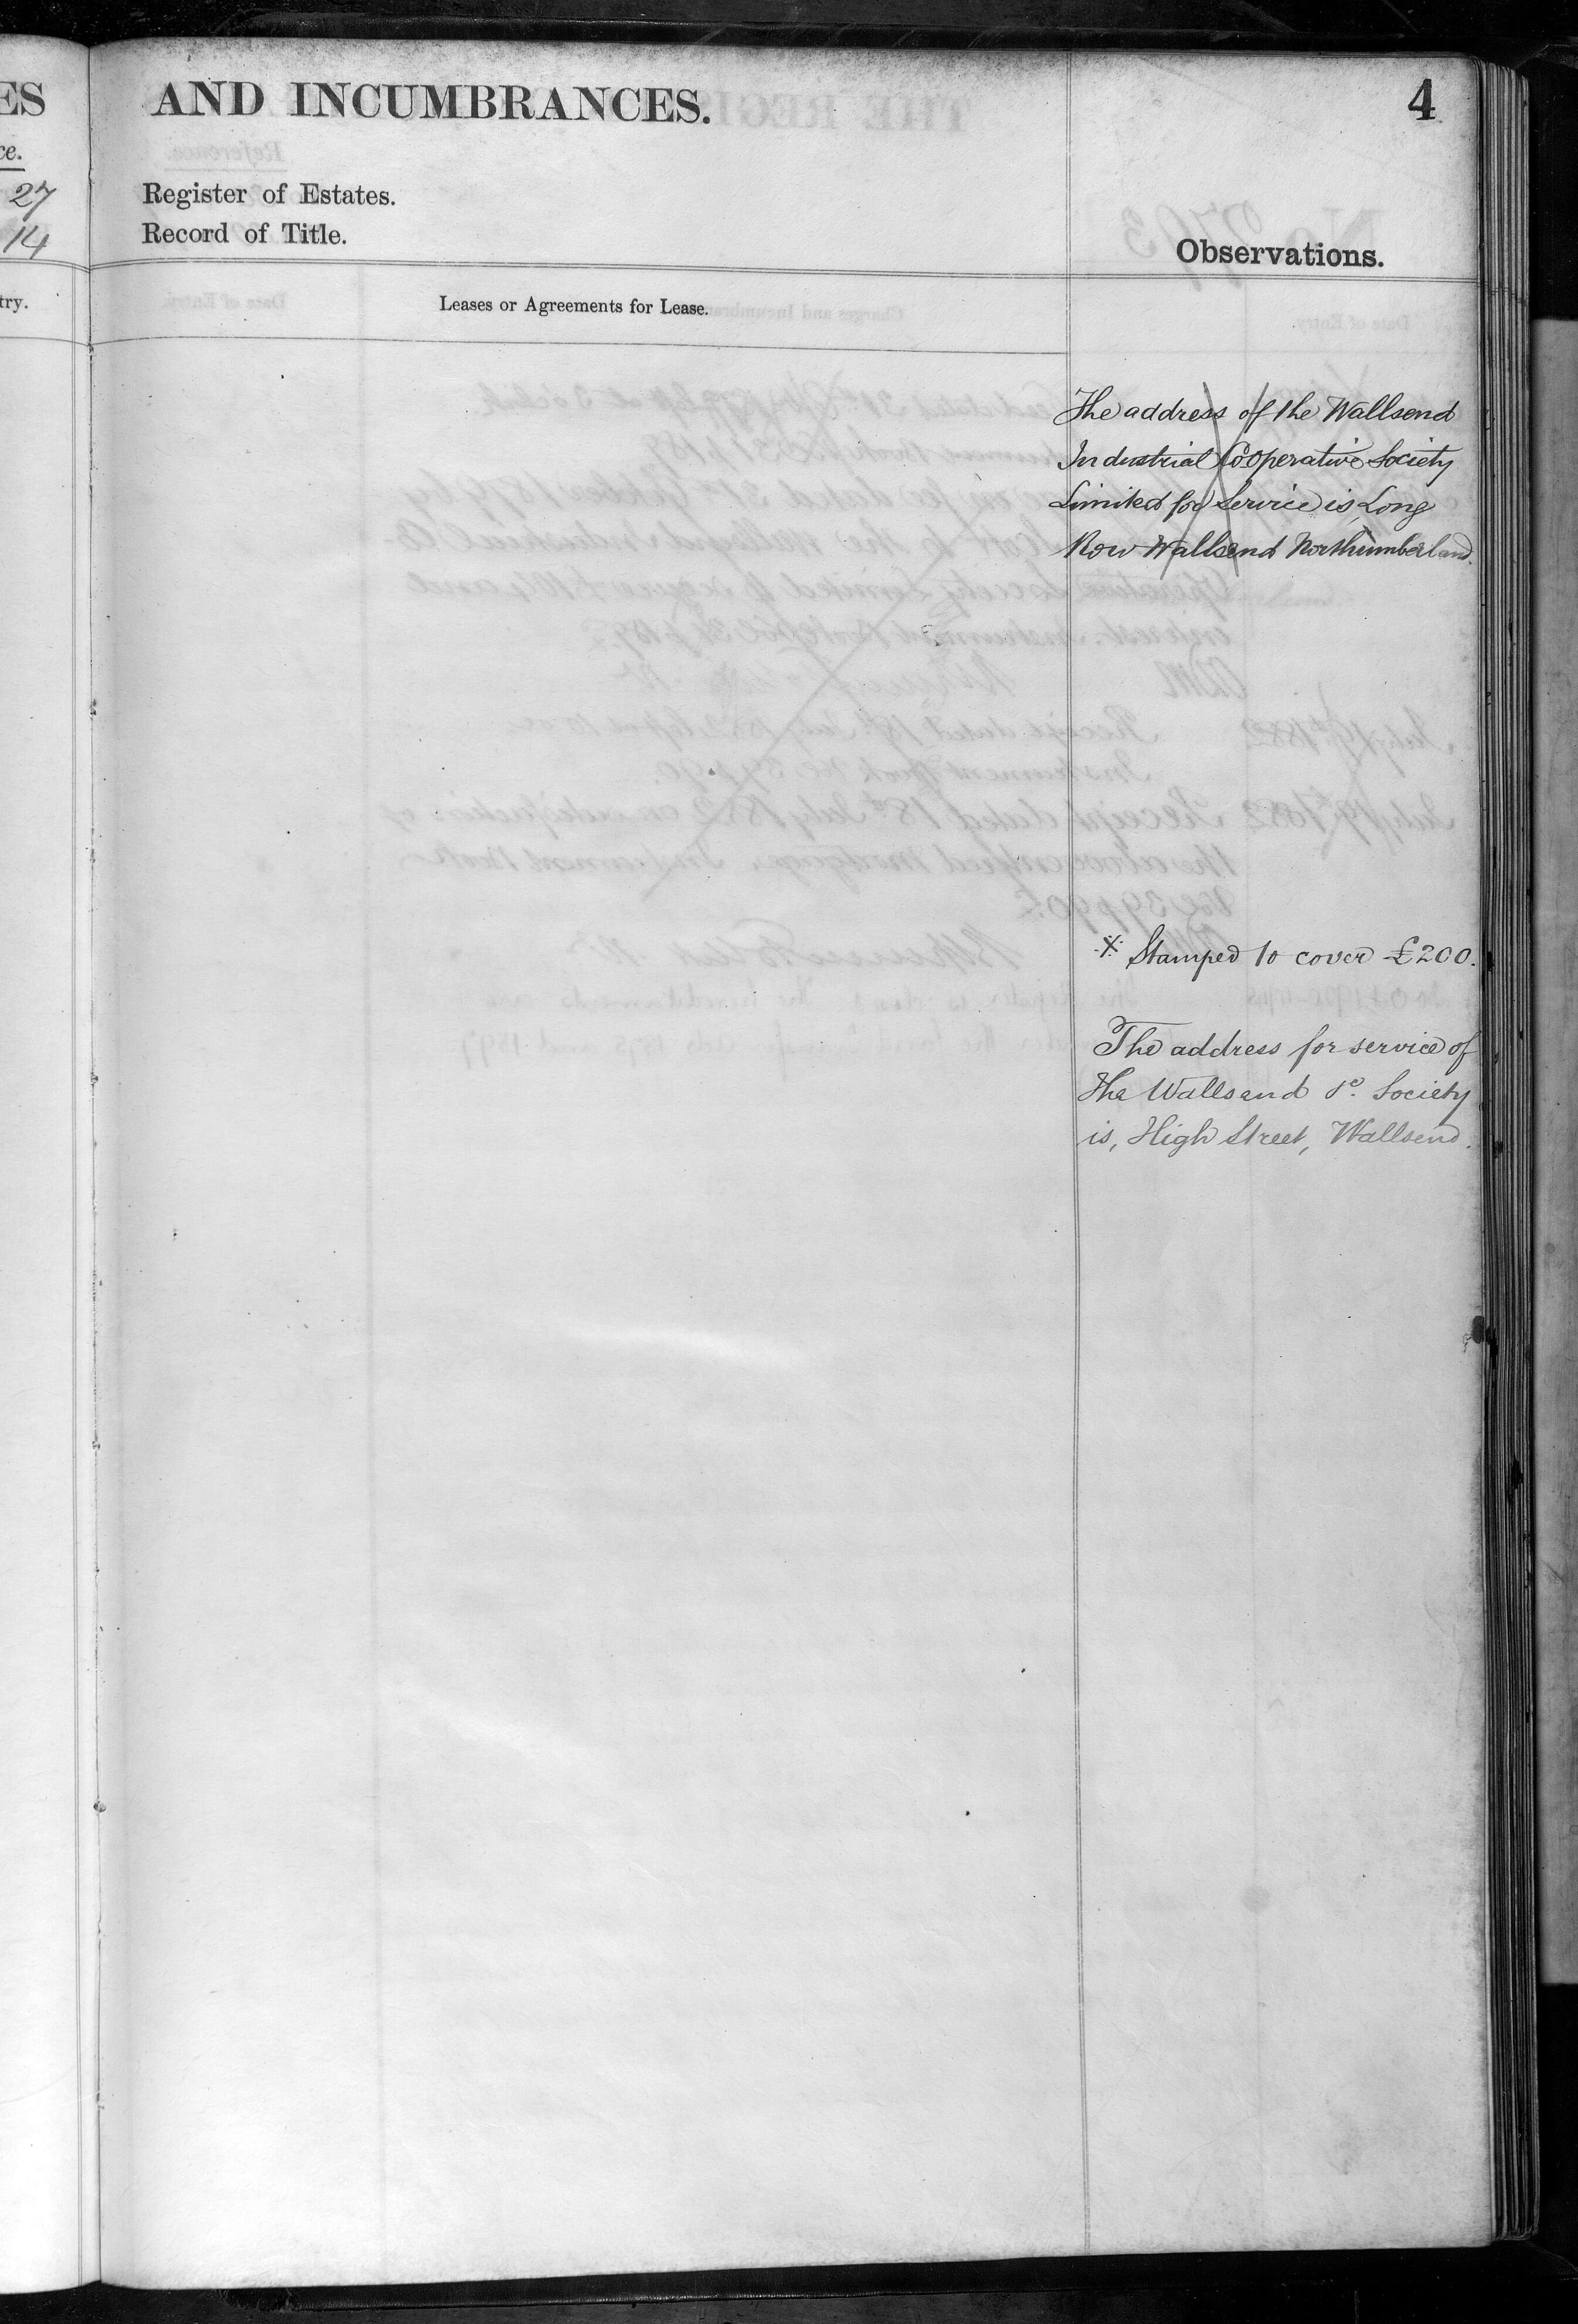 ES
ce.
27
14
try.
AND INCUMBRANCES.
4
Register of Estates.
Record of Title.
Observations.
Leases or Agreements for Lease.
The address of the Wallsend
Industrial Cooperative Society
Limited for Service is Long
Row Wallsend Northumberland.
* Stamped to cover £200.
The address for service of
the Wallsend &c. Society
is, High Street, Wallsend.